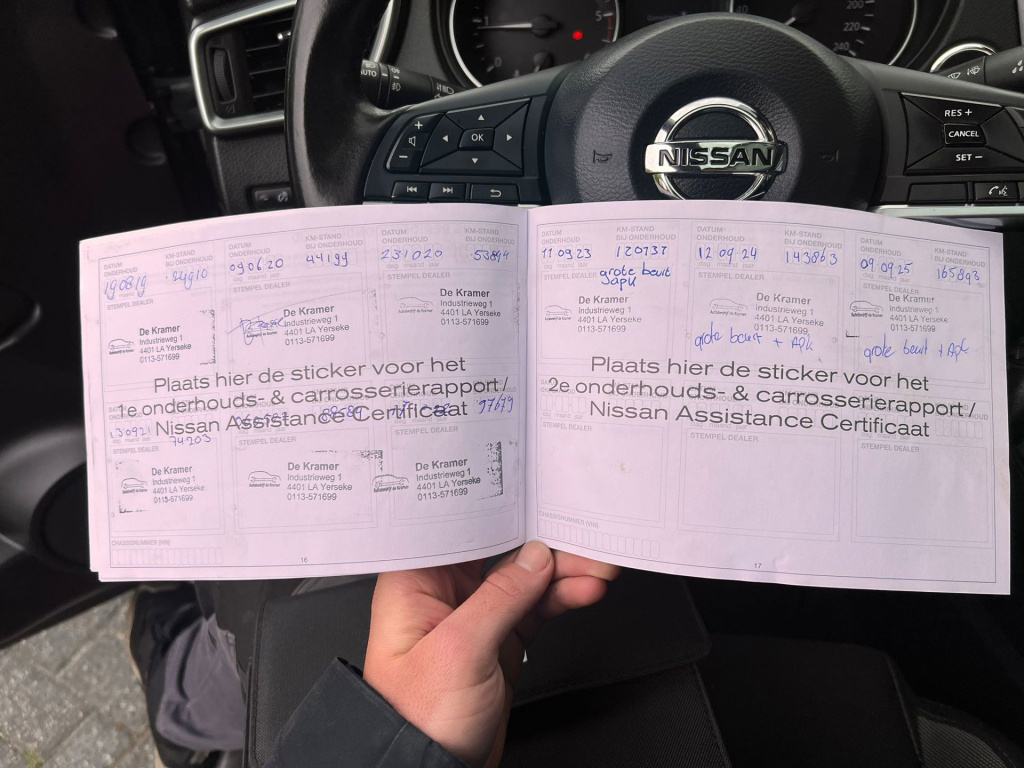 1
5
200
220
240
AUTO
+
OK
−
RES +
CANCEL
SET −
NISSAN
DATUM ONDERHOUD
KM-STAND BIJ ONDERHOUD
19 08 19
dag maand jaar
STEMPEL DEALER
De Kramer
Industrieweg 1
4401 LA Yerseke
0113-571699
DATUM ONDERHOUD
KM-STAND BIJ ONDERHOUD
09 06 20
44199
dag maand jaar
STEMPEL DEALER
De Kramer
Industrieweg 1
4401 LA Yerseke
0113-571699
DATUM ONDERHOUD
KM-STAND BIJ ONDERHOUD
23 10 20
53894
dag maand jaar
STEMPEL DEALER
De Kramer
Industrieweg 1
4401 LA Yerseke
0113-571699
Plaats hier de sticker voor het
1e onderhouds- & carrosserierapport /
Nissan Assistance Certificaat
13 09 21
74203
STEMPEL DEALER
De Kramer
Industrieweg 1
4401 LA Yerseke
0113-571699
STEMPEL DEALER
De Kramer
Industrieweg 1
4401 LA Yerseke
0113-571699
97679
STEMPEL DEALER
De Kramer
Industrieweg 1
4401 LA Yerseke
0113-571699
CHASSISNUMMER (VIN)
16
DATUM ONDERHOUD
KM-STAND BIJ ONDERHOUD
11 09 23
120737
dag maand jaar
grote beurt
STEMPEL DEALER
De Kramer
Industrieweg 1
4401 LA Yerseke
0113-571699
DATUM ONDERHOUD
KM-STAND BIJ ONDERHOUD
12 09 24
143863
dag maand jaar
STEMPEL DEALER
De Kramer
Industrieweg 1
4401 LA Yerseke
0113-571699
grote beurt + Apk
DATUM ONDERHOUD
KM-STAND BIJ ONDERHOUD
09 09 25
165893
dag maand jaar
STEMPEL DEALER
De Kramer
Industrieweg 1
4401 LA Yerseke
0113-571699
grote beurt + Apk
Plaats hier de sticker voor het
2e onderhouds- & carrosserierapport /
Nissan Assistance Certificaat
STEMPEL DEALER
STEMPEL DEALER
STEMPEL DEALER
CHASSISNUMMER (VIN)
17